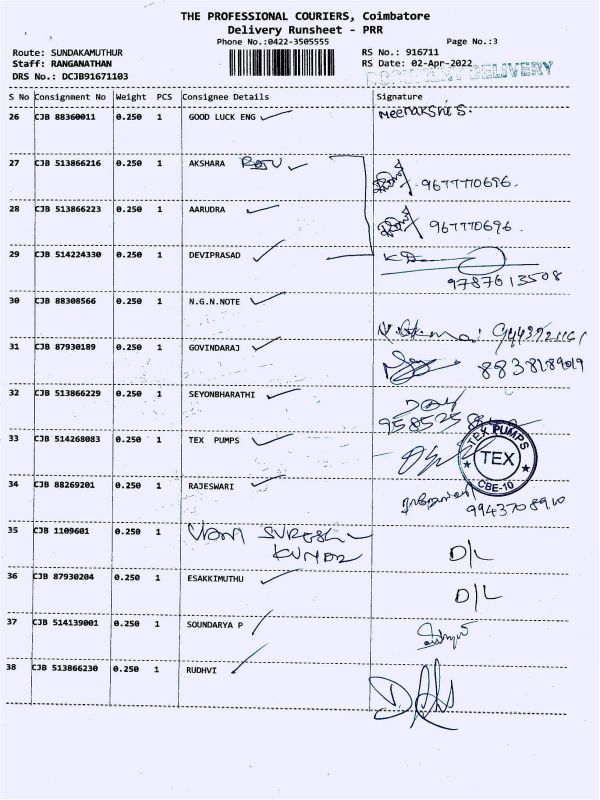 THE PROFESSIONAL COURIERS, Coimbatore
Delivery Runsheet - PRR
Phone No.:0422-3505555
Page No.:3
Route: SUNDAKAMUTHUR
RS No.: 916711
Staff: RANGANATHAN
RS Date: 02-Apr-2022
DRS No.: DCJB91671103
DOCUMENT DELIVERY
S No Consignment No Weight PCS Consignee Details Signature
26 CJB 88360011 0.250 1 GOOD LUCK ENG Meenakshi S.
27 CJB 513866216 0.250 1 AKSHARA 9677770696.
28 CJB 513866223 0.250 1 AARUDRA 9677770696.
29 CJB 514224330 0.250 1 DEVIPRASAD
9787613508
30 CJB 88308566 0.250 1 N.G.N.NOTE
31 CJB 87930189 0.250 1 GOVINDARAJ
32 CJB 513866229 0.250 1 SEYONBHARATHI
33 CJB 514268083 0.250 1 TEX PUMPS
TEX PUMPS
TEX
CBE-10
34 CJB 88269201 0.250 1 RAJESWARI
9943708910
35 CJB 1109601 0.250 1 SURESH
KUMAR D/L
36 CJB 87930204 0.250 1 ESAKKIMUTHU D/L
37 CJB 514139001 0.250 1 SOUNDARYA P
38 CJB 513866230 0.250 1 RUDHVI